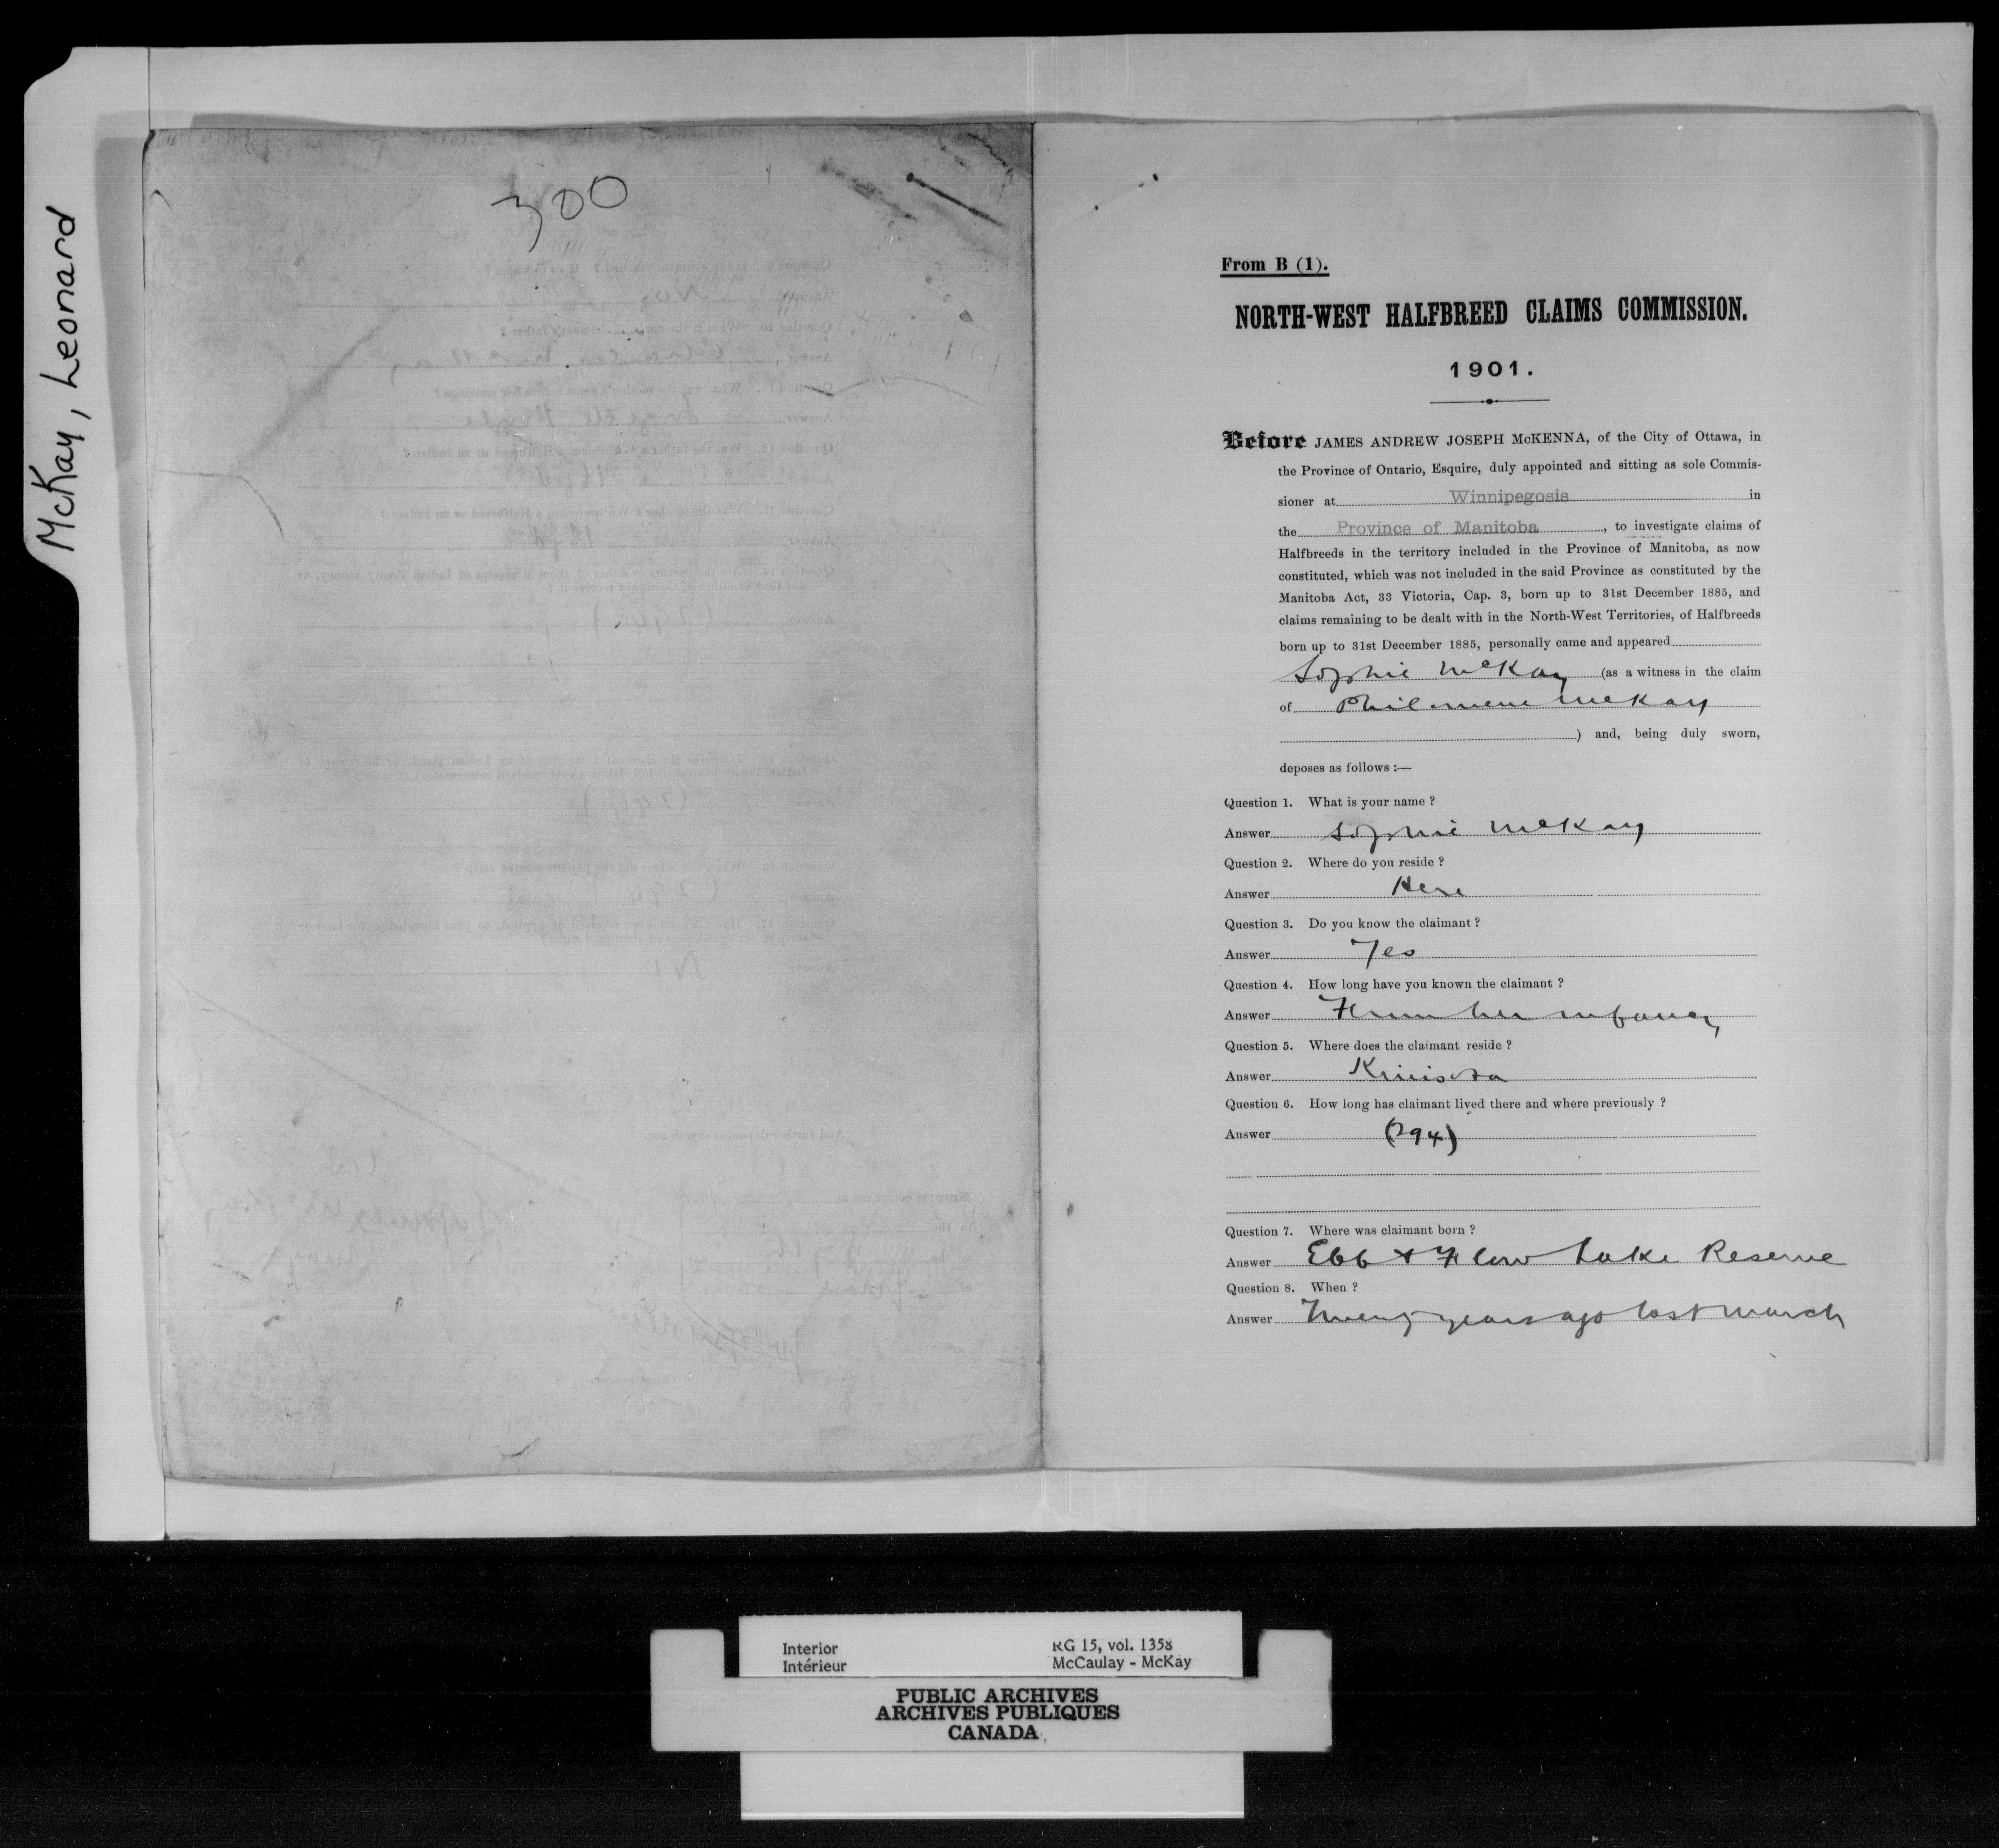 McKay, Leonard
300
From B (1).
NORTH-WEST HALFBREED CLAIMS COMMISSION.
1901.
Before JAMES ANDREW JOSEPH McKENNA, of the City of Ottawa, in
the Province of Ontario, Esquire, duly appointed and sitting as sole Commis-
sioner at Winnipegosis in
the Province of Manitoba, to investigate claims of
Halfbreeds in the territory included in the Province of Manitoba, as now
constituted, which was not included in the said Province as constituted by the
Manitoba Act, 33 Victoria, Cap. 3, born up to 31st December 1885, and
claims remaining to be dealt with in the North-West Territories, of Halfbreeds
born up to 31st December 1885, personally came and appeared
Sophie McKay (as a witness in the claim
of Philomene McKay
) and, being duly sworn,
deposes as follows :—
Question 1. What is your name ?
Answer Sophie McKay
Question 2. Where do you reside ?
Answer Here
Question 3. Do you know the claimant ?
Answer Yes
Question 4. How long have you known the claimant ?
Answer From her infancy
Question 5. Where does the claimant reside ?
Answer Kinisota
Question 6. How long has claimant lived there and where previously ?
Answer (294)
Question 7. Where was claimant born ?
Answer Ebb & Flow Lake Reserve
Question 8. When ?
Answer Twenty years ago last March
Interior
Intérieur
RG 15, vol. 1358
McCaulay - McKay
PUBLIC ARCHIVES
ARCHIVES PUBLIQUES
CANADA